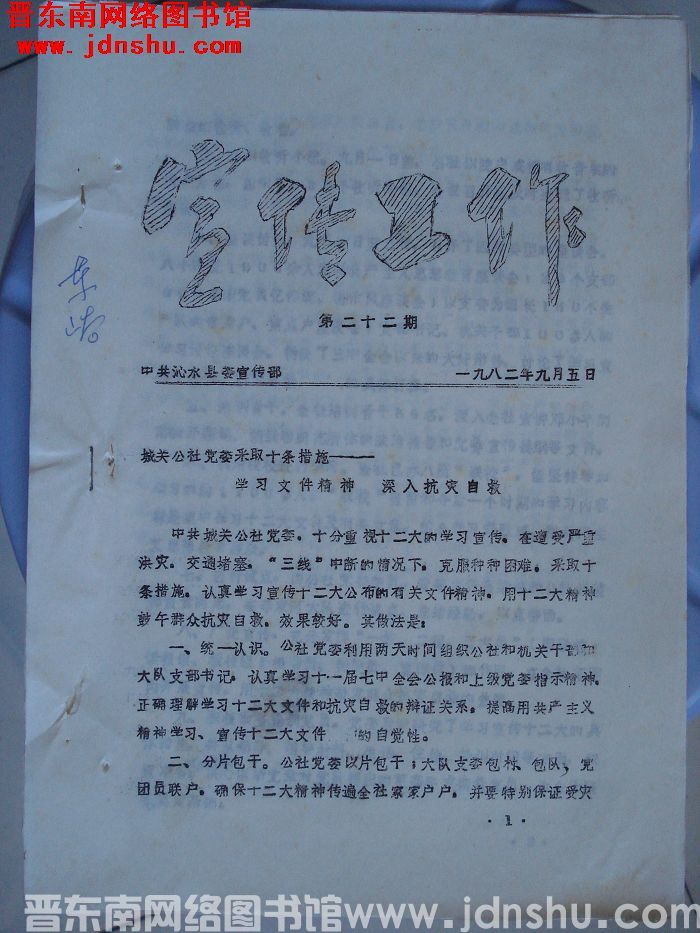 晋东南网络图书馆
www.jdnshu.com
宣传工作
第二十二期
中共沁水县委宣传部 一九八二年九月五日
城关公社党委采取十条措施——
学习文件精神 深入抗灾自救
中共城关公社党委，十分重视十二大的学习宣传。在遭受严重
洪灾。交通堵塞。“三线”中断的情况下。克服种种困难。采取十
条措施。认真学习宣传十二大公布的有关文件精神。用十二大精神
鼓午群众抗灾自救。效果较好。其做法是：
一、统一认识。公社党委利用两天时间组织公社和机关干部和
大队支部书记，认真学习十一届七中全会公报和上级党委指示精神。
正确理解学习十二大文件和抗灾自救的辩证关系。提高用共产主义
精神学习、宣传十二大文件 的自觉性。
二、分片包干。公社党委以片包干；大队支委包村、包队，党
团员联户。确保十二大精神传遍全社家家户户。并要特别保证受灾
·1·
晋东南网络图书馆www.jdnshu.com